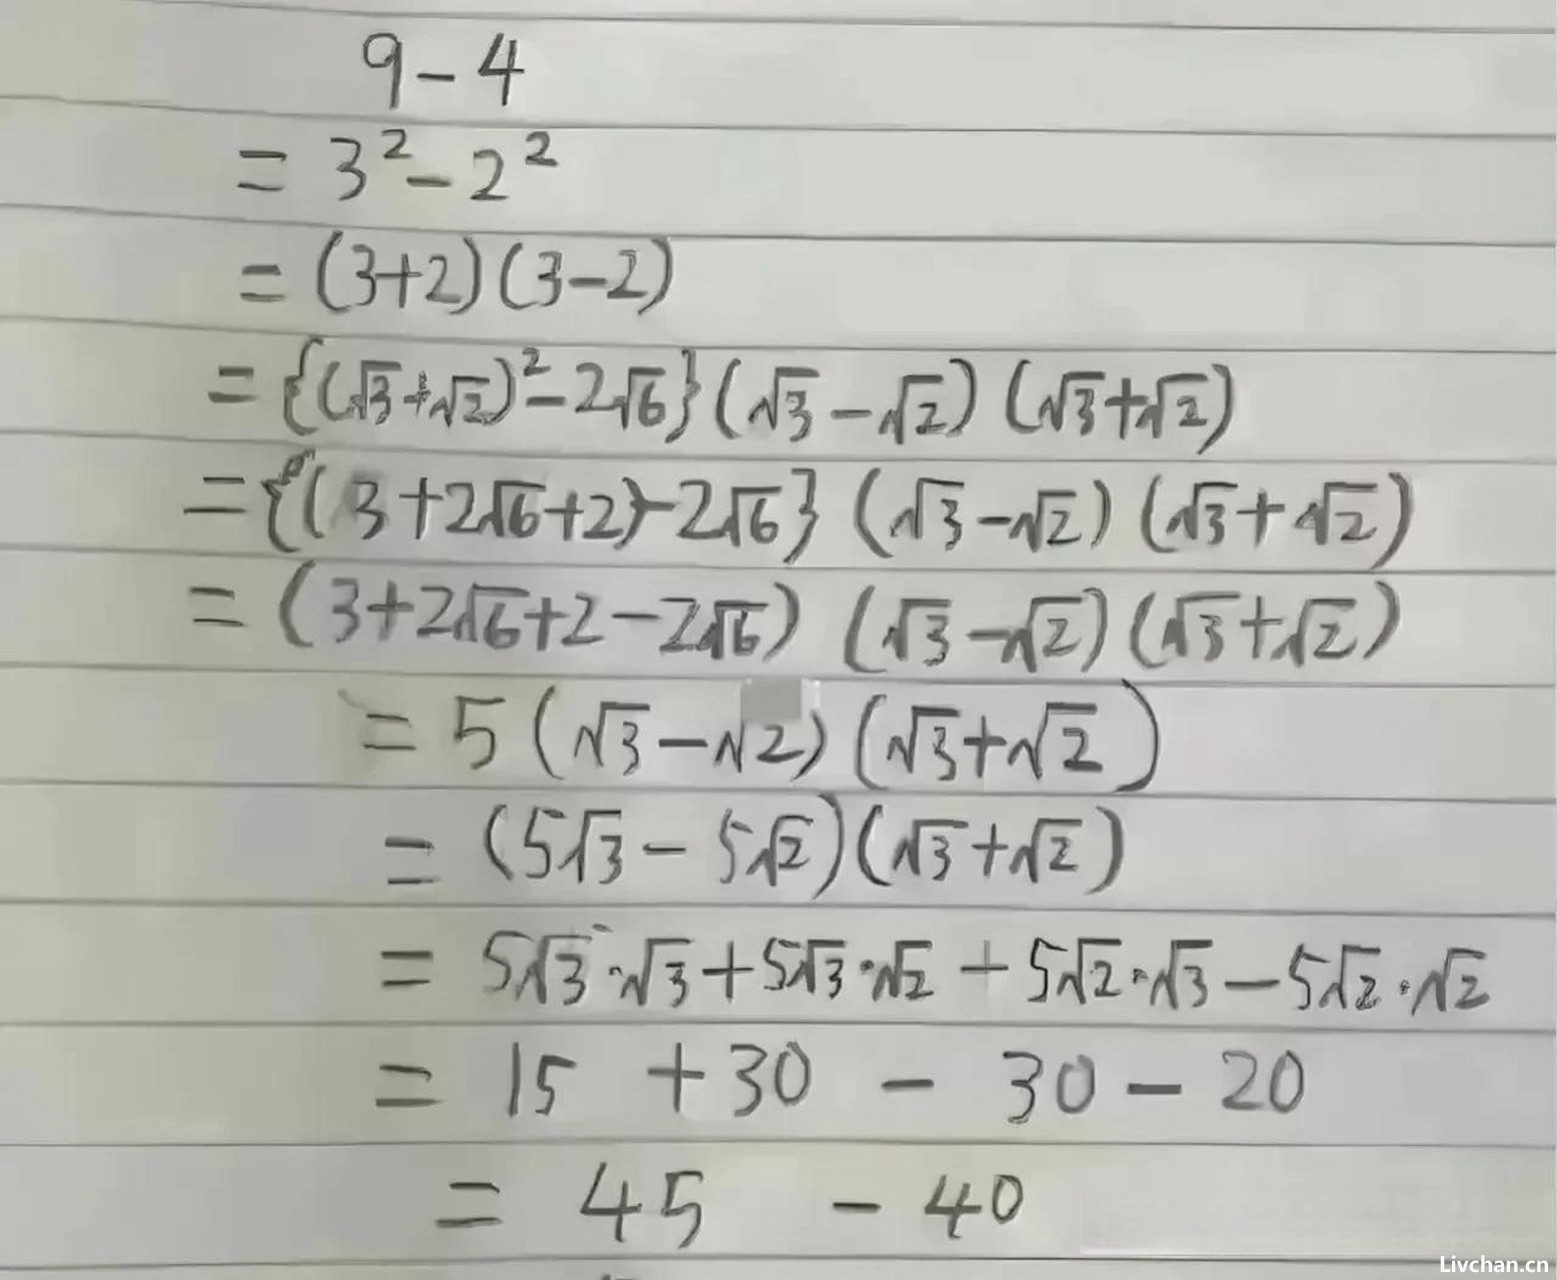 9-4
= 3²-2²
= (3+2)(3-2)
= {(√3+√2)²-2√6}(√3-√2)(√3+√2)
= {(3+2√6+2)-2√6}(√3-√2)(√3+√2)
= (3+2√6+2-2√6)(√3-√2)(√3+√2)
= 5(√3-√2)(√3+√2)
= (5√3-5√2)(√3+√2)
= 5√3·√3+5√3·√2+5√2·√3-5√2·√2
= 15 +30 - 30-20
= 45 - 40
Livchan.cn